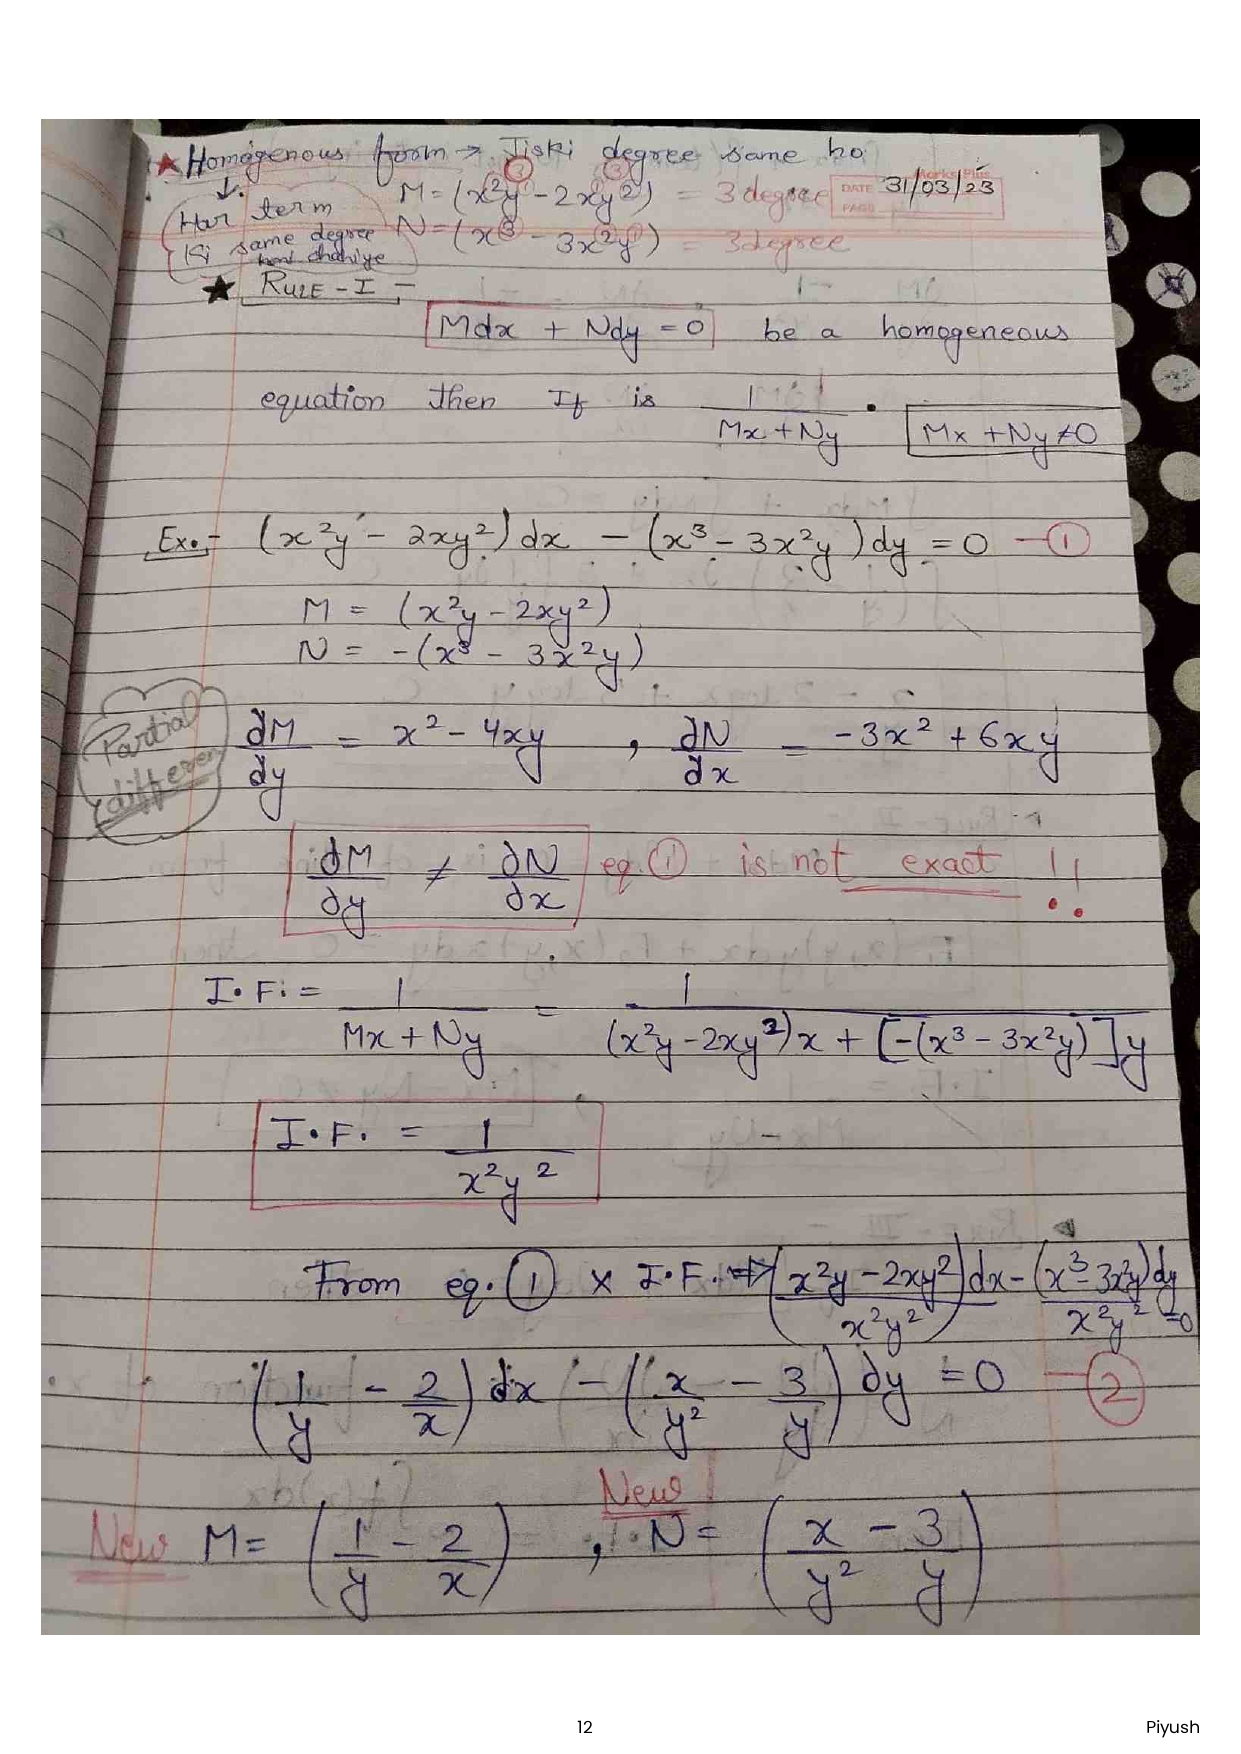 ★ Homogenous form → Jiski degree same ho
M = (x²y - 2xy²) = 3 degree
DATE 31/03/23
PAGE
Har term
ki same degree
honi chahiye
N = (x³ - 3x²y) = 3 degree
★ RULE - I -
Mdx + Ndy = 0 be a homogeneous
equation then If is 1/(Mx + Ny) . Mx + Ny ≠ 0
Ex.- (x²y - 2xy²) dx - (x³ - 3x²y) dy = 0 — ①
M = (x²y - 2xy²)
N = -(x³ - 3x²y)
Partial
differen
∂M/∂y = x² - 4xy , ∂N/∂x = -3x² + 6xy
∂M/∂y ≠ ∂N/∂x eq. ① is not exact !!
I.F. = 1/(Mx + Ny) = 1/((x²y - 2xy²)x + [-(x³ - 3x²y)]y)
I.F. = 1/(x²y²)
From eq. ① × I.F. ⇒ ((x²y - 2xy²)/(x²y²)) dx - (x³ - 3x²y)dy/(x²y²) = 0
(1/y - 2/x) dx - (x/y² - 3/y) dy = 0 — ②
New M = (1/y - 2/x) , New N = (x/y² - 3/y)
12
Piyush